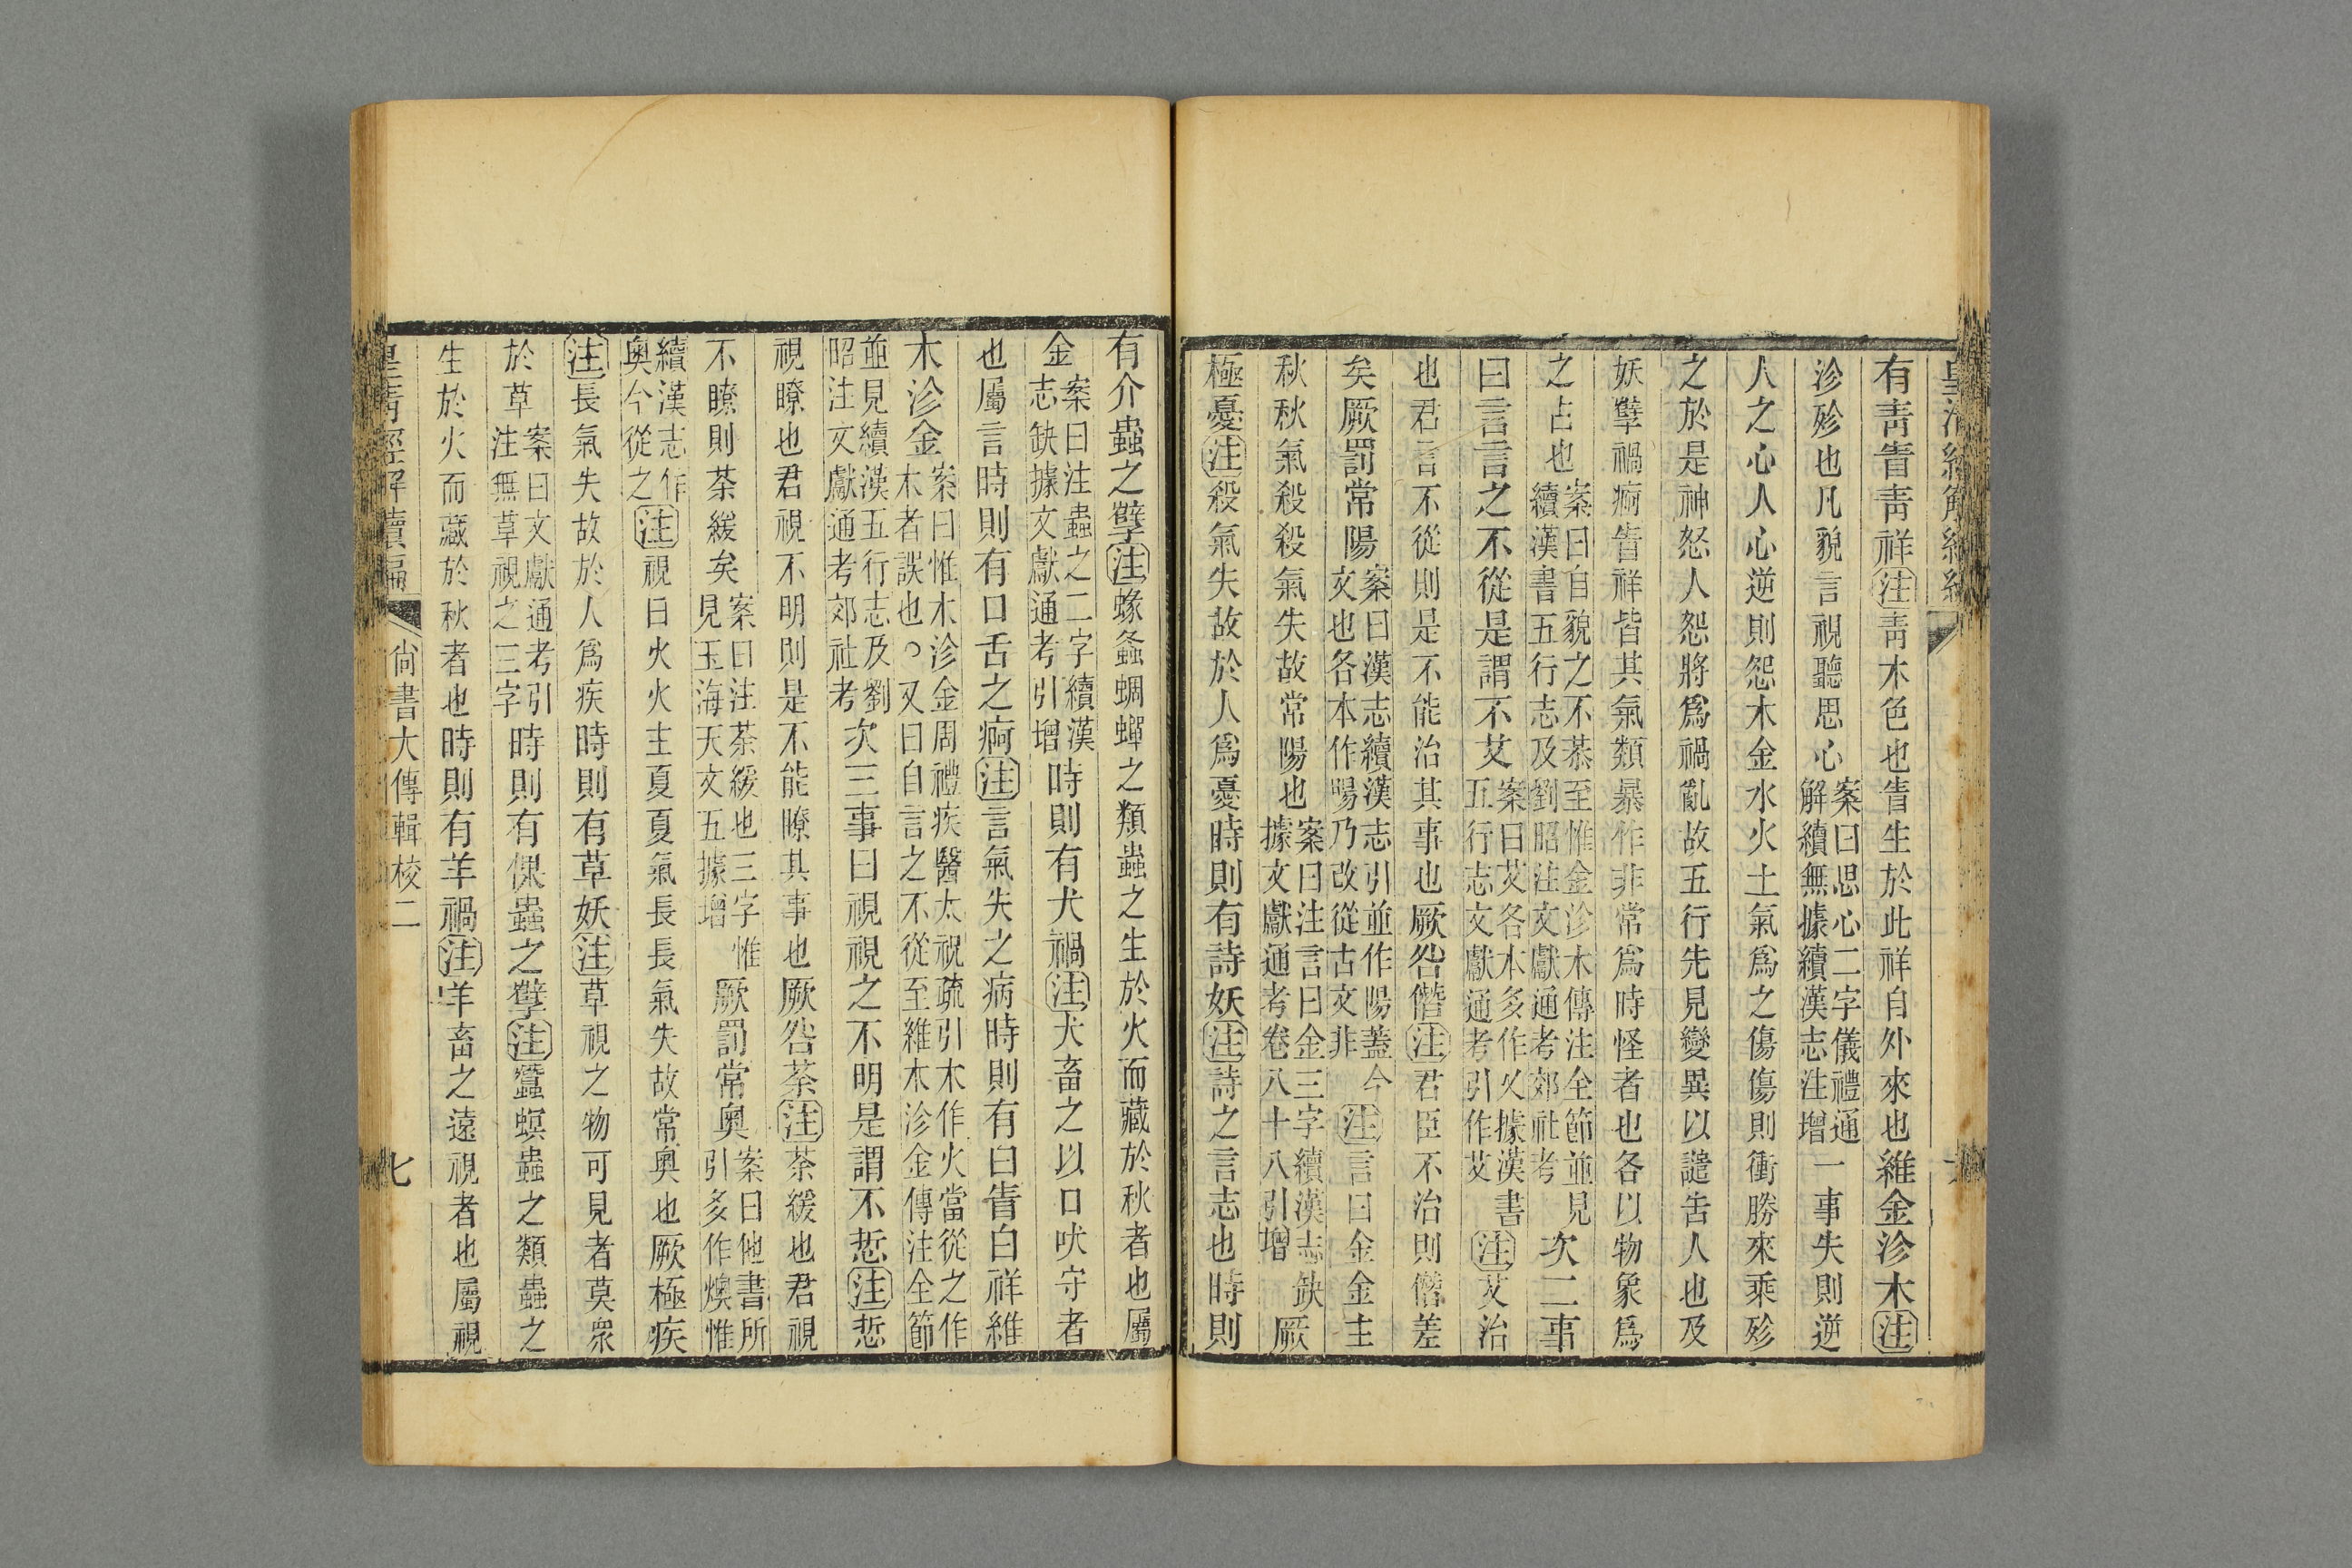 有青眚青祥注青木色也眚生於此祥自外來也維金沴木注
沴殄也凡貌言視聽思心案曰思心二字儀禮通解續無據續漢志注增一事失則逆
人之心人心逆則怨木金水火土氣爲之傷傷則衝勝來乘殄
之於是神怒人怨將爲禍亂故五行先見變異以譴吿人也及
妖孽禍痾眚祥皆其氣類暴作非常爲時怪者也各以物象爲
之占也案曰自貌之不恭至惟金沴木傳注全節並見續漢書五行志及劉昭注文獻通考郊社考次二事
曰言言之不從是謂不艾案曰艾各本多作乂據漢書五行志文獻通考引作艾注艾治
也君言不從則是不能治其事也厥咎僭注君臣不治則僭差
矣厥罰常陽案曰漢志續漢志引並作陽蓋今文也各本作暘乃改從古文非注言曰金金主
秋秋氣殺殺氣失故常陽也案曰注言曰金三字續漢志缺據文獻通考卷八十八引增厥
極憂注殺氣失故於人爲憂時則有詩妖注詩之言志也時則
有介蟲之孽注蝝螽蜩蟬之類蟲之生於火而藏於秋者也屬
金案曰注蟲之二字續漢志缺據文獻通考引增時則有犬禍注犬畜之以口吠守者
也屬言時則有口舌之痾注言氣失之病時則有白眚白祥維
木沴金案曰惟木沴金周禮疾醫太祝疏引木作火當從之作木者誤也○又曰自言之不從至維木沴金傳注全節
並見續漢五行志及劉昭注文獻通考郊社考次三事曰視視之不明是謂不悊注悊
視瞭也君視不明則是不能瞭其事也厥咎荼注荼緩也君視
不瞭則荼緩矣案曰注荼緩也三字惟見玉海天文五據增厥罰常奧案曰他書所引多作燠惟
續漢志作奧今從之注視曰火火主夏夏氣長長氣失故常奧也厥極疾
注長氣失故於人爲疾時則有草妖注草視之物可見者莫衆
於草案曰文獻通考引注無草視之三字時則有倮蟲之孽注蠶螟蟲之類蟲之
生於火而藏於秋者也時則有羊禍注羊畜之遠視者也屬視
皇清經解續編
尙書大傳輯校二
七